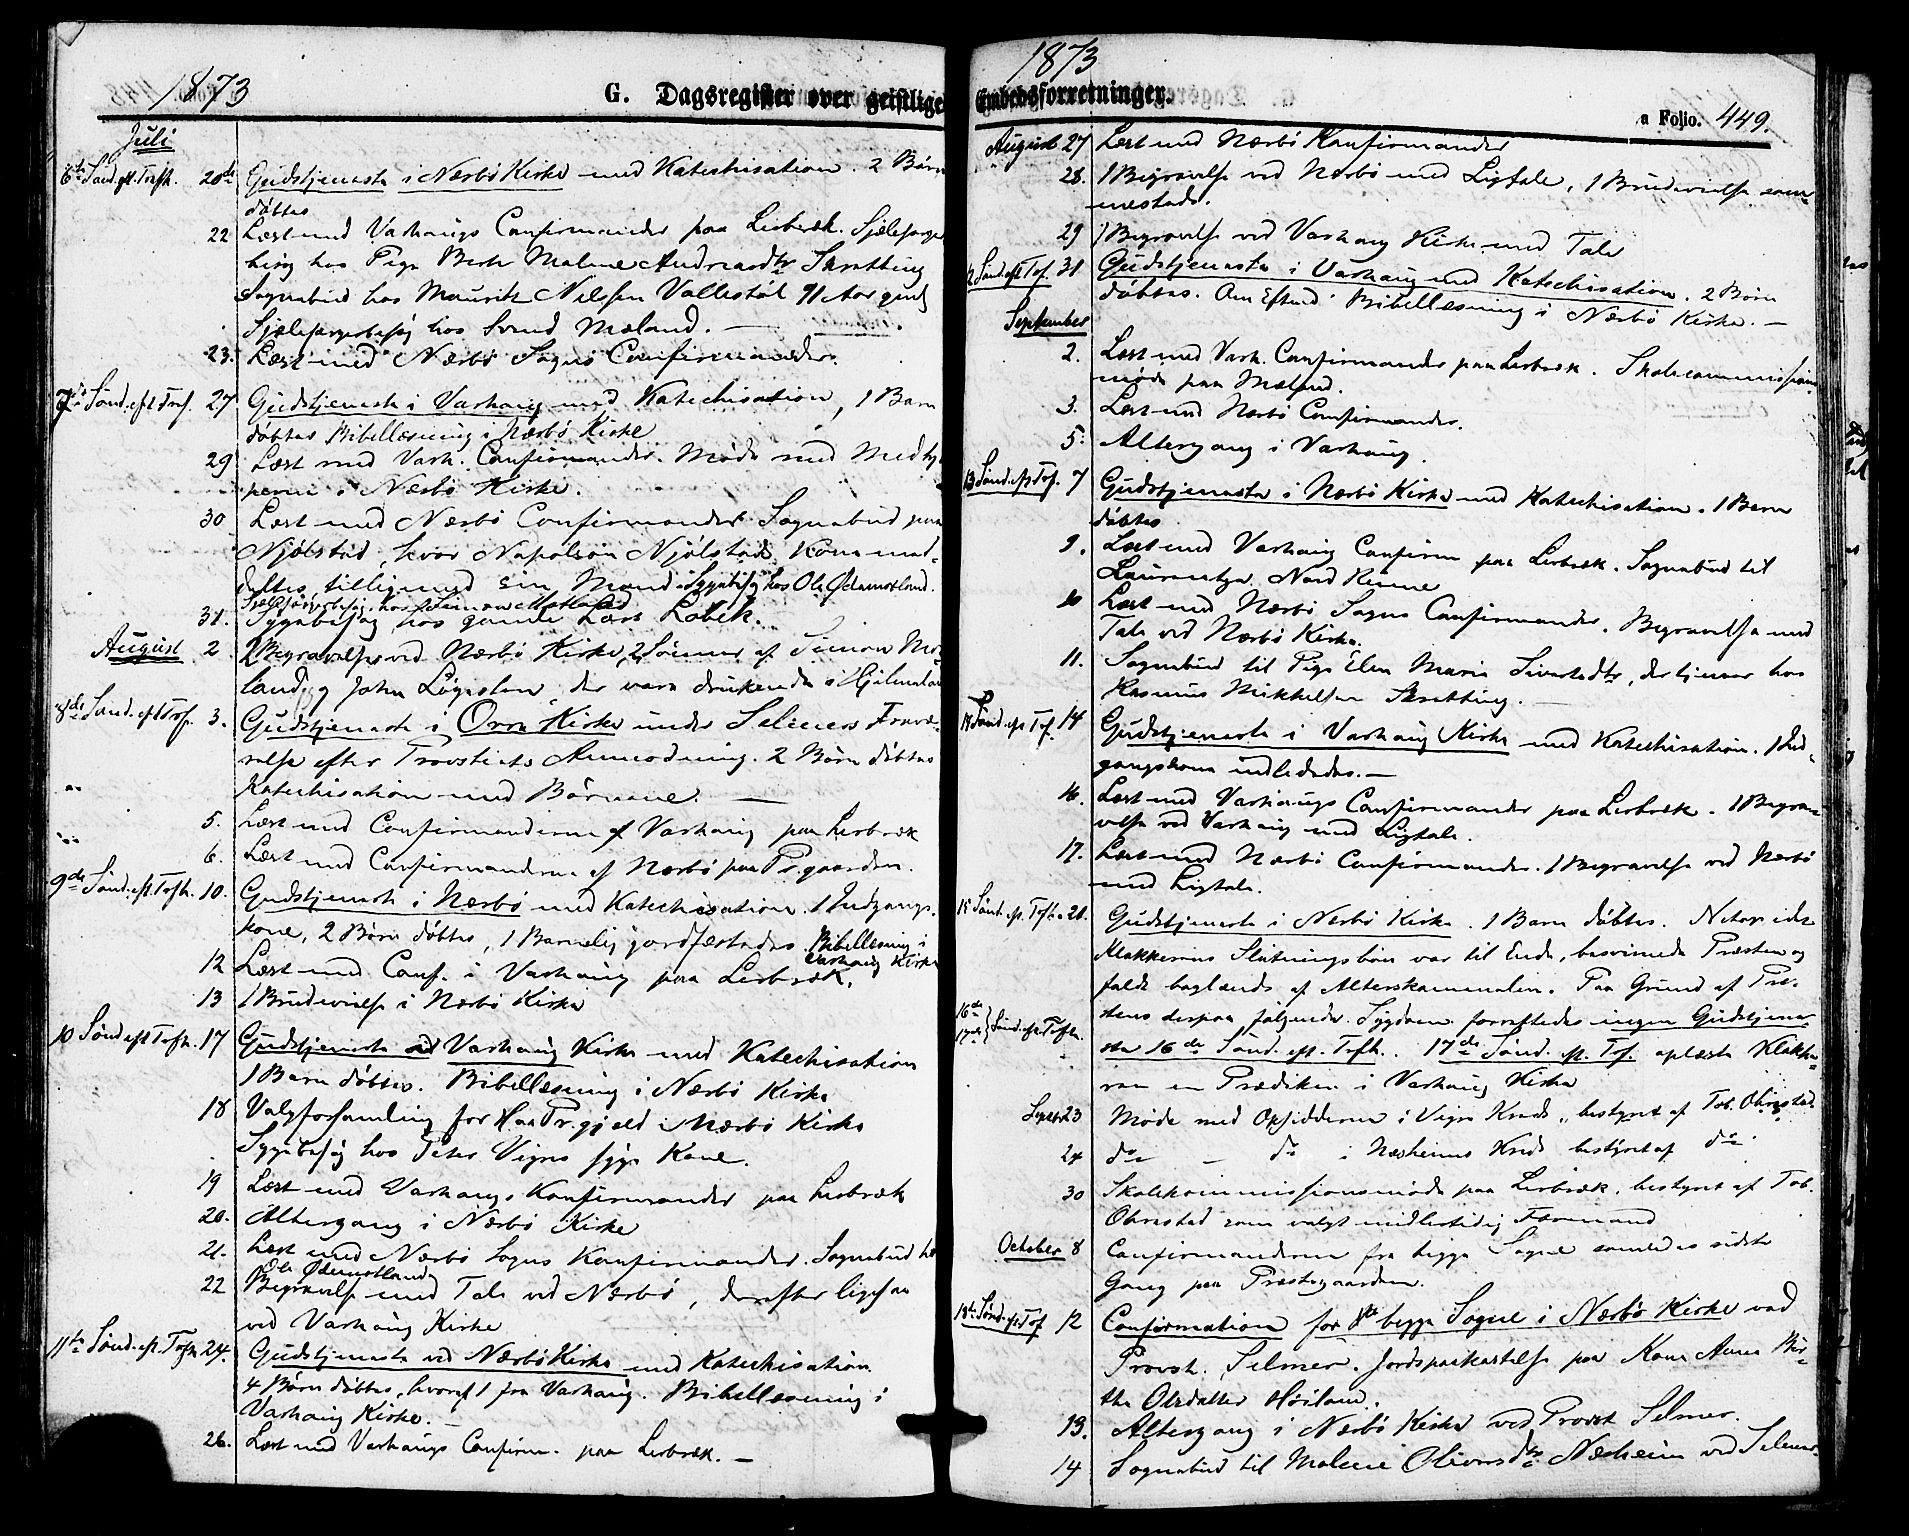 1873
G. Dagsregister over geistlige
Juli
6te Sönd. eft. Trefh. 20de Gudstjeneste i Nærbö Kirke med Katechisation. 2 Börn
döbtes
22 Læst med Varhougs Confirmander paa Lerbræk. Sjælesörger
besög hos Pige Berte Malene Andreasdtr Skretting
Sognebud hos Mauritz Nilsen Vollestöl 91 Aar gml
Sjælesörgerbesög hos Svend Mæland. —
23. Læst med Nærbö Sogns Confirmander.
7de Sönd. eft Tref. 27 Gudstjeneste i Varhaug med Katechisation, 1 Barn
döbtes Bibellæsning i Nærbö Kirke
29 Læst med Varh. Confirmander. Möde med Medhjæl
perne i Nærbö Kirke.
30 Læst med Nærbö Confirmander Sognebud paa
Njölstad, hvor Napoleon Njölstads Kone med-
deltes tilligemed sin Mand Sygebesög hos Ole Ödemotland.
Sjælesörgerbesög hos Simon Motland
31. Sygebesög hos gamle Lars Lobek.
August 2 2 Begravelser ved Nærbö Kirke, 2 Sönner af Simon Mot
land og John Lögeslen der vare druknede i Hjelmeland
8de Sönd. eft Tref. 3. Gudstjeneste i Orre Kirke under Selmers Fravæ-
relse efter Provstiets Anmodning. 2 Börn döbtes
Katechisation med Börnene. —
5. Læst med Confirmanderne af Varhaug paa Lerbræk
6. Læst med Confirmanderne af Nærbö paa Pr.gaarden.
9de Sönd. eft. Trefh. 10. Gudstjeneste i Nærbö med Katechisation. 1 Indgangs-
kone, 2 Börn döbtes, 1 Barnelig jordfæstedes. Bibellæsning i
Varhaug Kirke
12 Læst med Conf. i Varhaug paa Lerbræk.
13 1 Brudevielse i Nærbö Kirke
10 Sönd eft Trefh. 17 Gudstjeneste ved Varhaug Kirke med Katechisation
1 Barn döbtes. Bibellæsning i Nærbö Kirke
18 Valgforsamling for Haa Pr.gjeld i Nærbö Kirke
Sygebesög hos Peter Vigres syge Kone.
19 Læst med Varhaugs Konfirmander paa Lerbræk
20. Altergang i Nærbö Kirke
21. Læst med Nærbö Sogns Konfirmander. Sognebud til
Ole Ödemotland
22 Begravelse med Tale ved Nærbö, derefter ligesaa
ved Varhaug Kirke
11te Sönd. eft. Trefh 24. Gudstjeneste ved Nærbö Kirke med Katechisation
4 Börn döbtes, hvoraf 1 fra Varhaug. Bibellæsning i
Varhaug Kirke. —
26. Læst med Varhaugs Confirm. paa Lerbræk. —
1873
Embedsforretninger.
a Folio. 449.
August 27 Læst med Nærbö Konfirmander
28. 1 Begravelse ved Nærbö med Ligtale, 1 Brudevielse sam-
mesteds.
29 1 Begravelse ved Varhaug Kirke med Tale
12 Sönd eft Tref. 31 Gudstjeneste i Varhaug med Katechisation. 2 Börn
döbtes. Om Efterm. Bibellæsning i Nærbö Kirke. —
September
2. Læst med Varh. Confirmander paa Lerbræk. Skolecommissions
möde paa Mæland.
3. Læst med Nærbö Confirmander.
5. Altergang i Varhaug.
13 Sönd. eft Tref. 7 Gudstjeneste i Nærbö Kirke med Katechisation. 1 Barn
döbtes
9. Læst med Varhaug Confirm paa Lerbræk. Sognebud til
Nord Renne
10 Læst med Nærbö Sogns Confirmander. Begravelse med
Tale ved Nærbö Kirke.
11. Sognebud til Pige Elen Marie Sivertsdtr, der tjener hos
Rasmus Mikkelsen Skretting. —
14 Sönd. eft Tref. 14 Gudstjeneste i Varhaug Kirke med Katechisation. 1 Ind-
gangskone indlededes. —
16. Læst med Varhaugs Confirmander paa Lerbræk. 1 Begra-
velse ved Varhaug med Ligtale.
17. Læst med Nærbö Confirmander. 1 Begravelse ved Nærbö
med Ligtale.
15 Sönd. eft. Trefh. 21. Gudstjeneste i Nærbö Kirke. 1 Barn döbtes. Netop idet
Klokkerens Slutningsbön var til Ende, besvimede Præsten og
faldt baglænds af Alterskammelen. Paa Grund af Præ-
16de
17de } Sönd. eft. Trefh. stens derpaa fölgende Sygdom forrettedes ingen Gudstjene-
ste 16de Sönd. eft. Trefh. 17de Sönd. eft. Tref. oplæste Klokke-
ren en Prædiken i Varhaug Kirke
Septbr 23 Möde med Opsidderne i Vigre Kreds, bestyret af Tob. Obrestad.
24 do — do i Næsheims Kreds bestyret af do
30 Skolekommissionsmöde paa Lerbræk, bestyret af Tob.
Obrestad som valgt midlertidig Formand
October 8 Confirmanderne fra begge Sogne samledes sidste
Gang paa Præstegaarden.
18de Sönd. eft Tref 12 Confirmation for begge Sogne i Nærbö Kirke ved
Provst Selmer. Jordspaakastelse paa Kone Anne Bir-
the Olsdatter Höiland.
13. Altergang i Nærbö Kirke ved Provst Selmer.
14 Sognebud til Malene Oliversdtr Næsheim ved Selmer